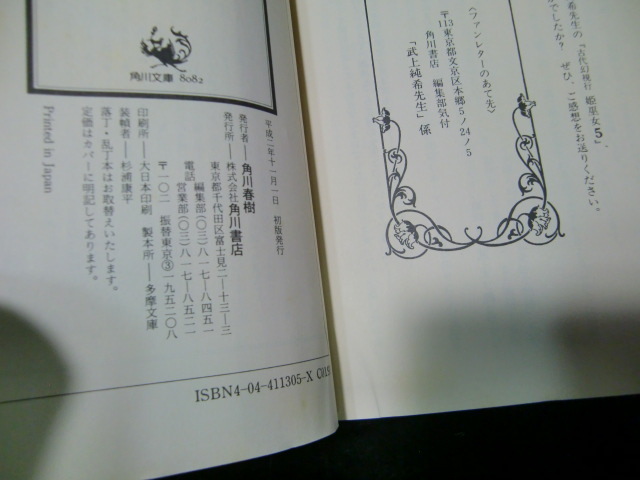 希先生の『古代幻視行 姫巫女5』、
でしたか? ぜひ、ご感想をお送りください。
〈ファンレターのあて先〉
〒113東京都文京区本郷5ノ24ノ5
角川書店 編集部気付
「武上純希先生」係
角川文庫 8082
平成二年十一月一日 初版発行
発行者──角川春樹
発行所──株式会社角川書店
東京都千代田区富士見二─十三─三
編集部(〇三)八一七─八四五一
電話
営業部(〇三)八一七─八五二一
〒一〇二 振替東京③一九五二〇八
印刷所──大日本印刷 製本所──多摩文庫
装幀者──杉浦康平
落丁・乱丁本はお取替えいたします。
定価はカバーに明記してあります。
Printed in Japan
ISBN4-04-411305-X